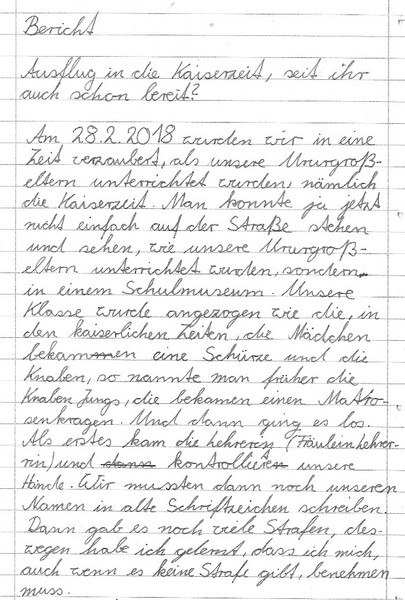 Bericht
Ausflug in die Kaiserzeit, seit ihr
auch schon bereit?
Am 28.2.2018 wurden wir in eine
Zeit verzaubert, als unsere Ururgroß-
eltern unterrichtet wurden, nämlich
die Kaiserzeit. Man konnte ja jetzt
nicht einfach auf der Straße stehen
und sehen, wie unsere Ururgroß-
eltern unterrichtet wurden, sondern
in einem Schulmuseum. Unsere
Klasse wurde angezogen wie die, in
den kaiserlichen Zeiten, die Mädchen
bekammen eine Schürze und die
Knaben, so nannte man früher die
Knaben Jungs, die bekamen einen Matro-
senkragen. Und dann ging es los.
Als erstes kam die Lehrerin (Fräulein Lehrer-
rin) und dann kontrollierten unsere
Hände. Wir mussten dann noch unseren
Namen in alte Schriftzeichen schreiben.
Dann gab es noch viele Strafen, des-
wegen habe ich gelernt, dass ich mich,
auch wenn es keine Strafe gibt, benehmen
muss.